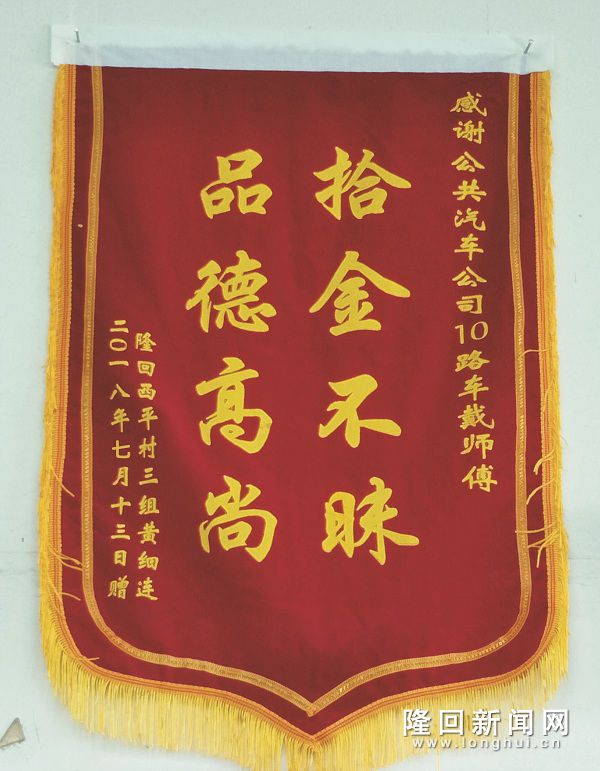 感谢公共汽车公司10路车戴师傅
拾金不昧
品德高尚
隆回西平村三组黄细连
二〇一八年七月十三日赠
隆回新闻网
www.longhui.cn